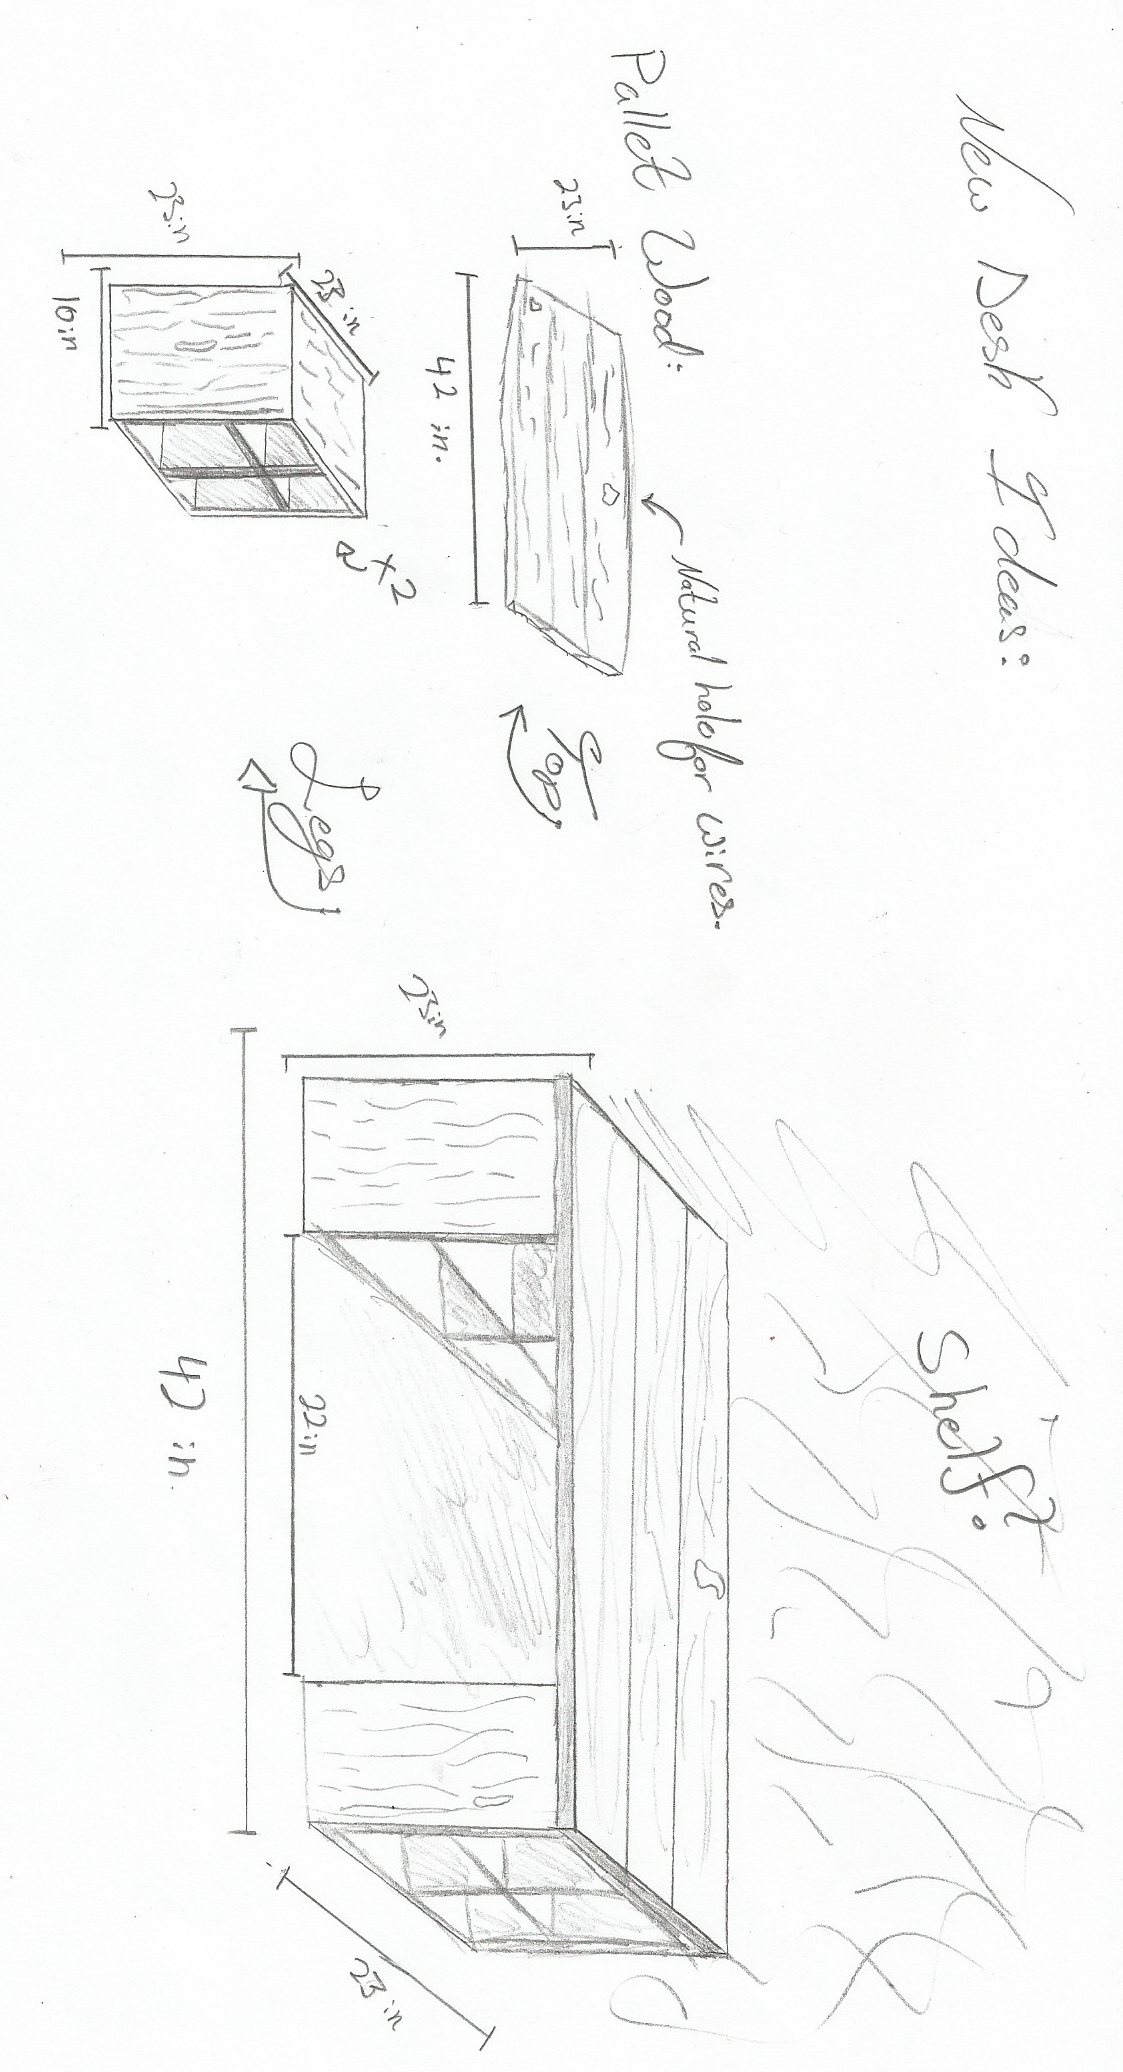 New Desk Ideas:
Pallet Wood:
Natural hole for wires.
23in
42 in.
Top
23in
23 in
10in
x2
Legs
Shelf?
23in
22in
42 in.
23 in